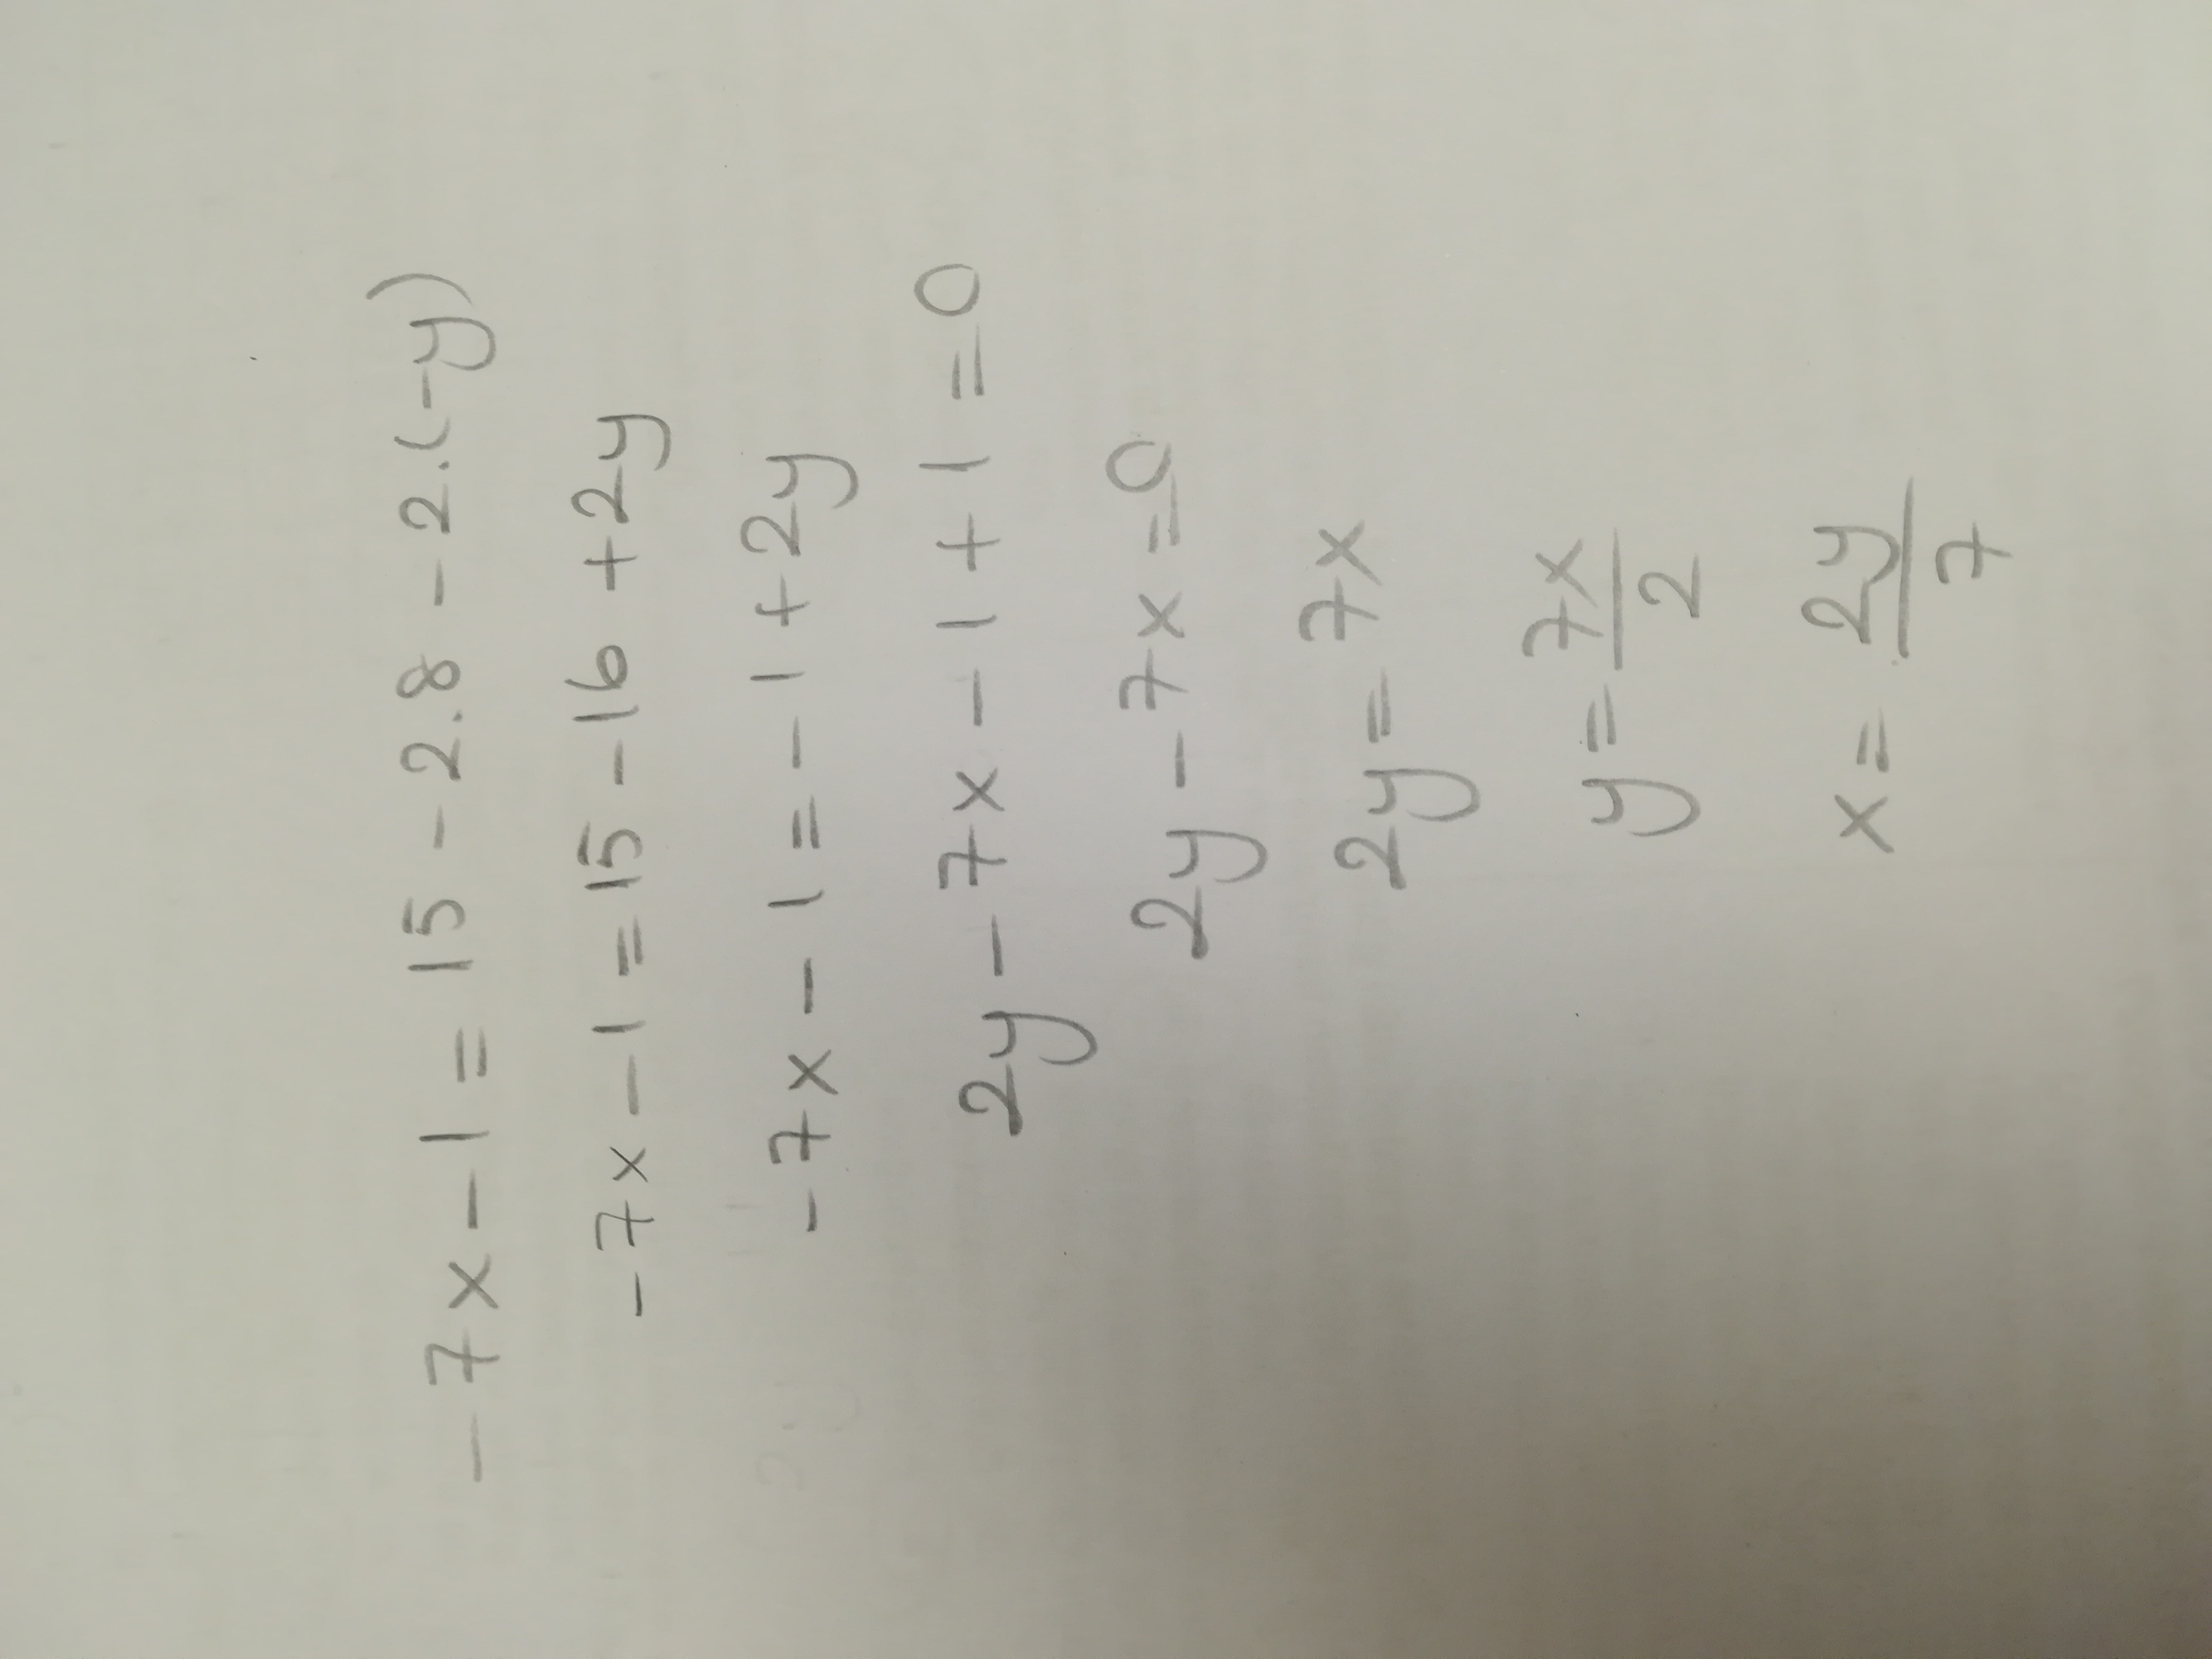 -7x-1=15-2.8-2.(-y)
-7x-1=15-16+2y
-7x-1=-1+2y
2y-7x-1+1=0
2y-7x=0
2y=7x
y=7x/2
x=2y/7